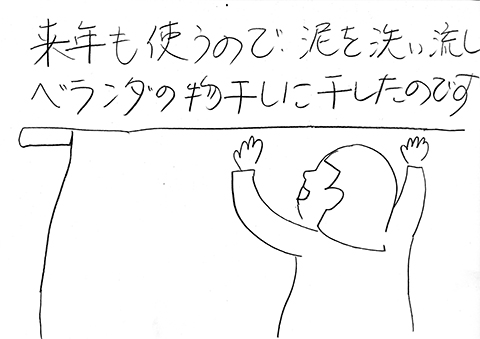 来年も使うので、泥を洗い流し
ベランダの物干しに干したのです